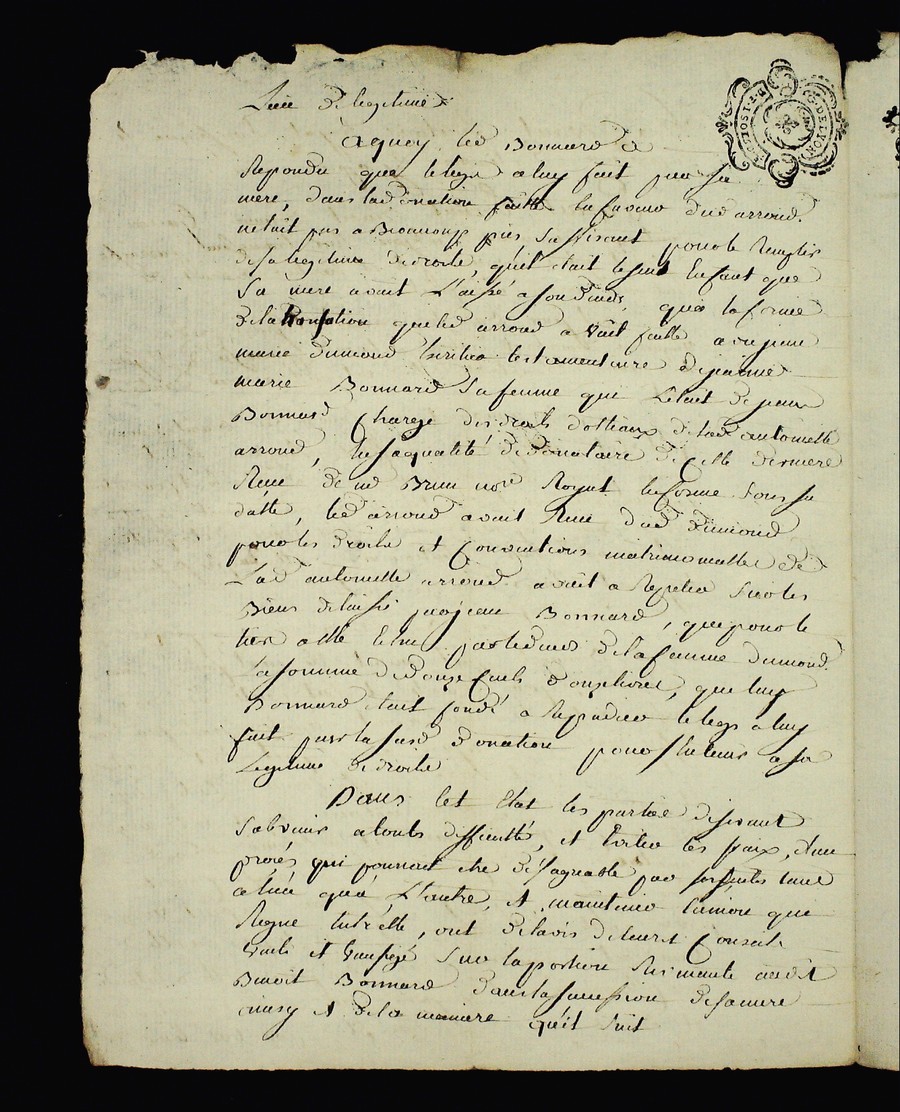 de legitime
aquoy led Bonnard a
Repondu que le legs a luy fait par sa
mere, dans lad donation faitte en faveur dud arroud
netait pas a Beaucoup pres sufisant pour le Remplir
de sa legitime de droite, qu'il etait le seul Enfant que
sa mere avait Laissé a son deces, que la forme
de la donation que led arroud a vait faitte a
marie dumond heritier testamentaire de
marie Bonnard sa femme qui Letait de jean
Bonnard Chargé des droits dotteaux de lad antoinette
arroud, En sa qualité de donataire de Cette derniere
Reçu de me Brun nore Royal En forme sous sa
datte, led arroud avait Reçu dud dumond
pour les droits et Conventions matrimonialles de
Lad antoinette arroud avait a Repeter sur les
Biens delaissé par jean Bonnard, que pour le
tier a elle Echu par le deces de la femme dumond
La somme de douze Cents onze livres, que luy
Bonnard etait fondé a Repudier le legs a luy
fait par la susd donation pour sen tenir a sa
Legitime de droite
Dans Cet Etat les parties desirant
subvenir a toute difficulté, et Eviter les fraix, d'un
procés qui pourrait etre desagreable par ses suites tant
a lun qua L'autre, et maintenir l'union qui
Regne Entr'elle, ont de lavis de leurs Conseils
traité et transigé sur la portion afferante audit
Benoit Bonnard dans la succession de sa mere
ainsy et de la maniere qu'il suit
G. DE LYON